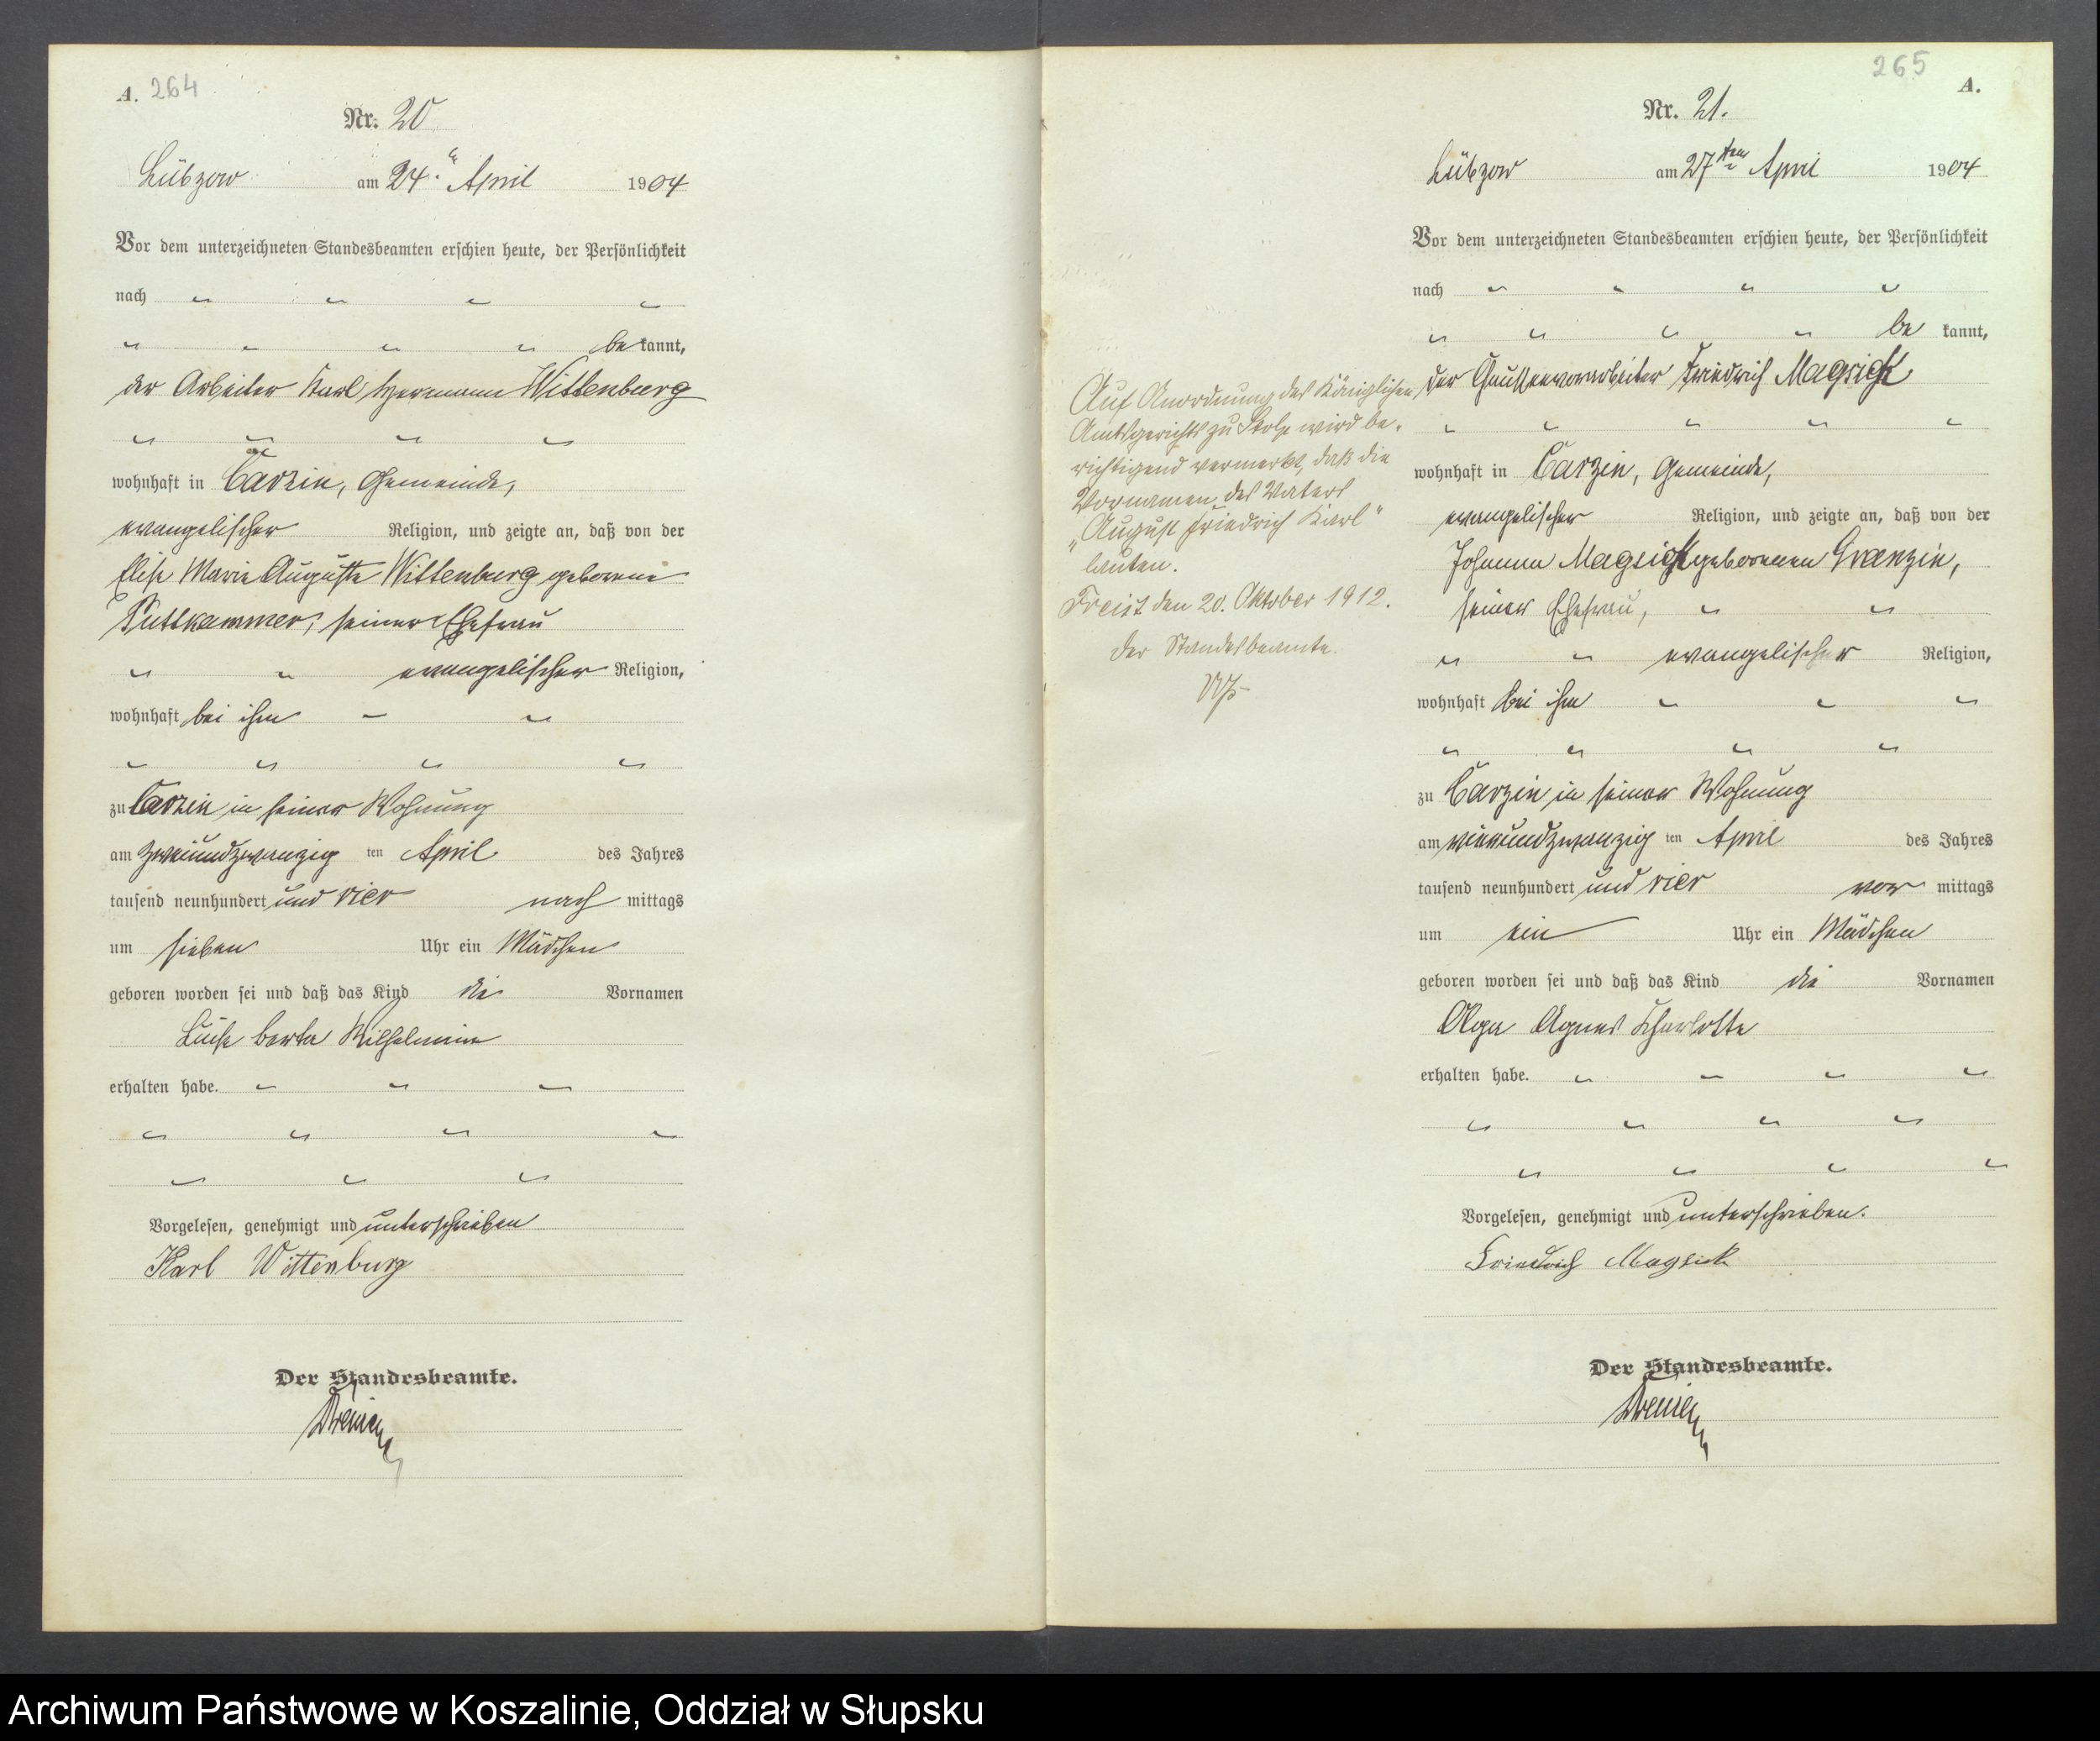 A. 264
Nr. 20
Lübzow am 24. April 1904
Vor dem unterzeichneten Standesbeamten erschien heute, der Persönlichkeit
nach
be kannt,
der Arbeiter Karl Hermann Wittenburg
wohnhaft in Carzin, Gemeinde,
evangelischer Religion, und zeigte an, daß von der
Elise Marie Auguste Wittenburg geborene
Puttkammer, seiner Ehefrau
evangelischer Religion,
wohnhaft bei ihm
zu Carzin in seiner Wohnung
am zweiundzwanzig ten April des Jahres
tausend neunhundert und vier nach mittags
um sieben Uhr ein Mädchen
geboren worden sei und daß das Kind die Vornamen
Luise Berta Wilhelmine
erhalten habe.
Vorgelesen, genehmigt und unterschrieben
Karl Wittenburg
Der Standesbeamte.
265
A.
Nr. 21.
Lübzow am 27ten April 1904
Vor dem unterzeichneten Standesbeamten erschien heute, der Persönlichkeit
nach
be kannt,
der Friedrich Magsick
wohnhaft in Carzin, Gemeinde,
evangelischer Religion, und zeigte an, daß von der
Johanna Magsick geborenen Granzin,
seiner Ehefrau,
evangelischer Religion,
wohnhaft bei ihm
zu Carzin in seiner Wohnung
am vierundzwanzig ten April des Jahres
tausend neunhundert und vier vor mittags
um ein Uhr ein Mädchen
geboren worden sei und daß das Kind die Vornamen
Olga Agnes Charlotte
erhalten habe.
Vorgelesen, genehmigt und unterschrieben.
Friedrich Magsick
Der Standesbeamte.
Auf Anordnung des Königlichen
Amtsgerichts zu Stolp wird be-
richtigend vermerkt, daß die
Vornamen des Vaters
„August Friedrich Karl"
lauten.
Freist den 20. Oktober 1912.
Der Standesbeamte.
Archiwum Państwowe w Koszalinie, Oddział w Słupsku